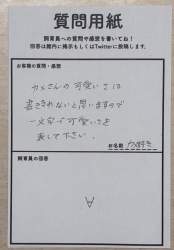 質問用紙
飼育員への質問や感想を書いてね！
回答は館内に掲示もしくはTwitterに投稿します。
お客様の質問・感想
カメさんの可愛いさは
書ききれないと思いますので
一文字で可愛いさを
表して下さい。
お名前
飼育員の回答
∀